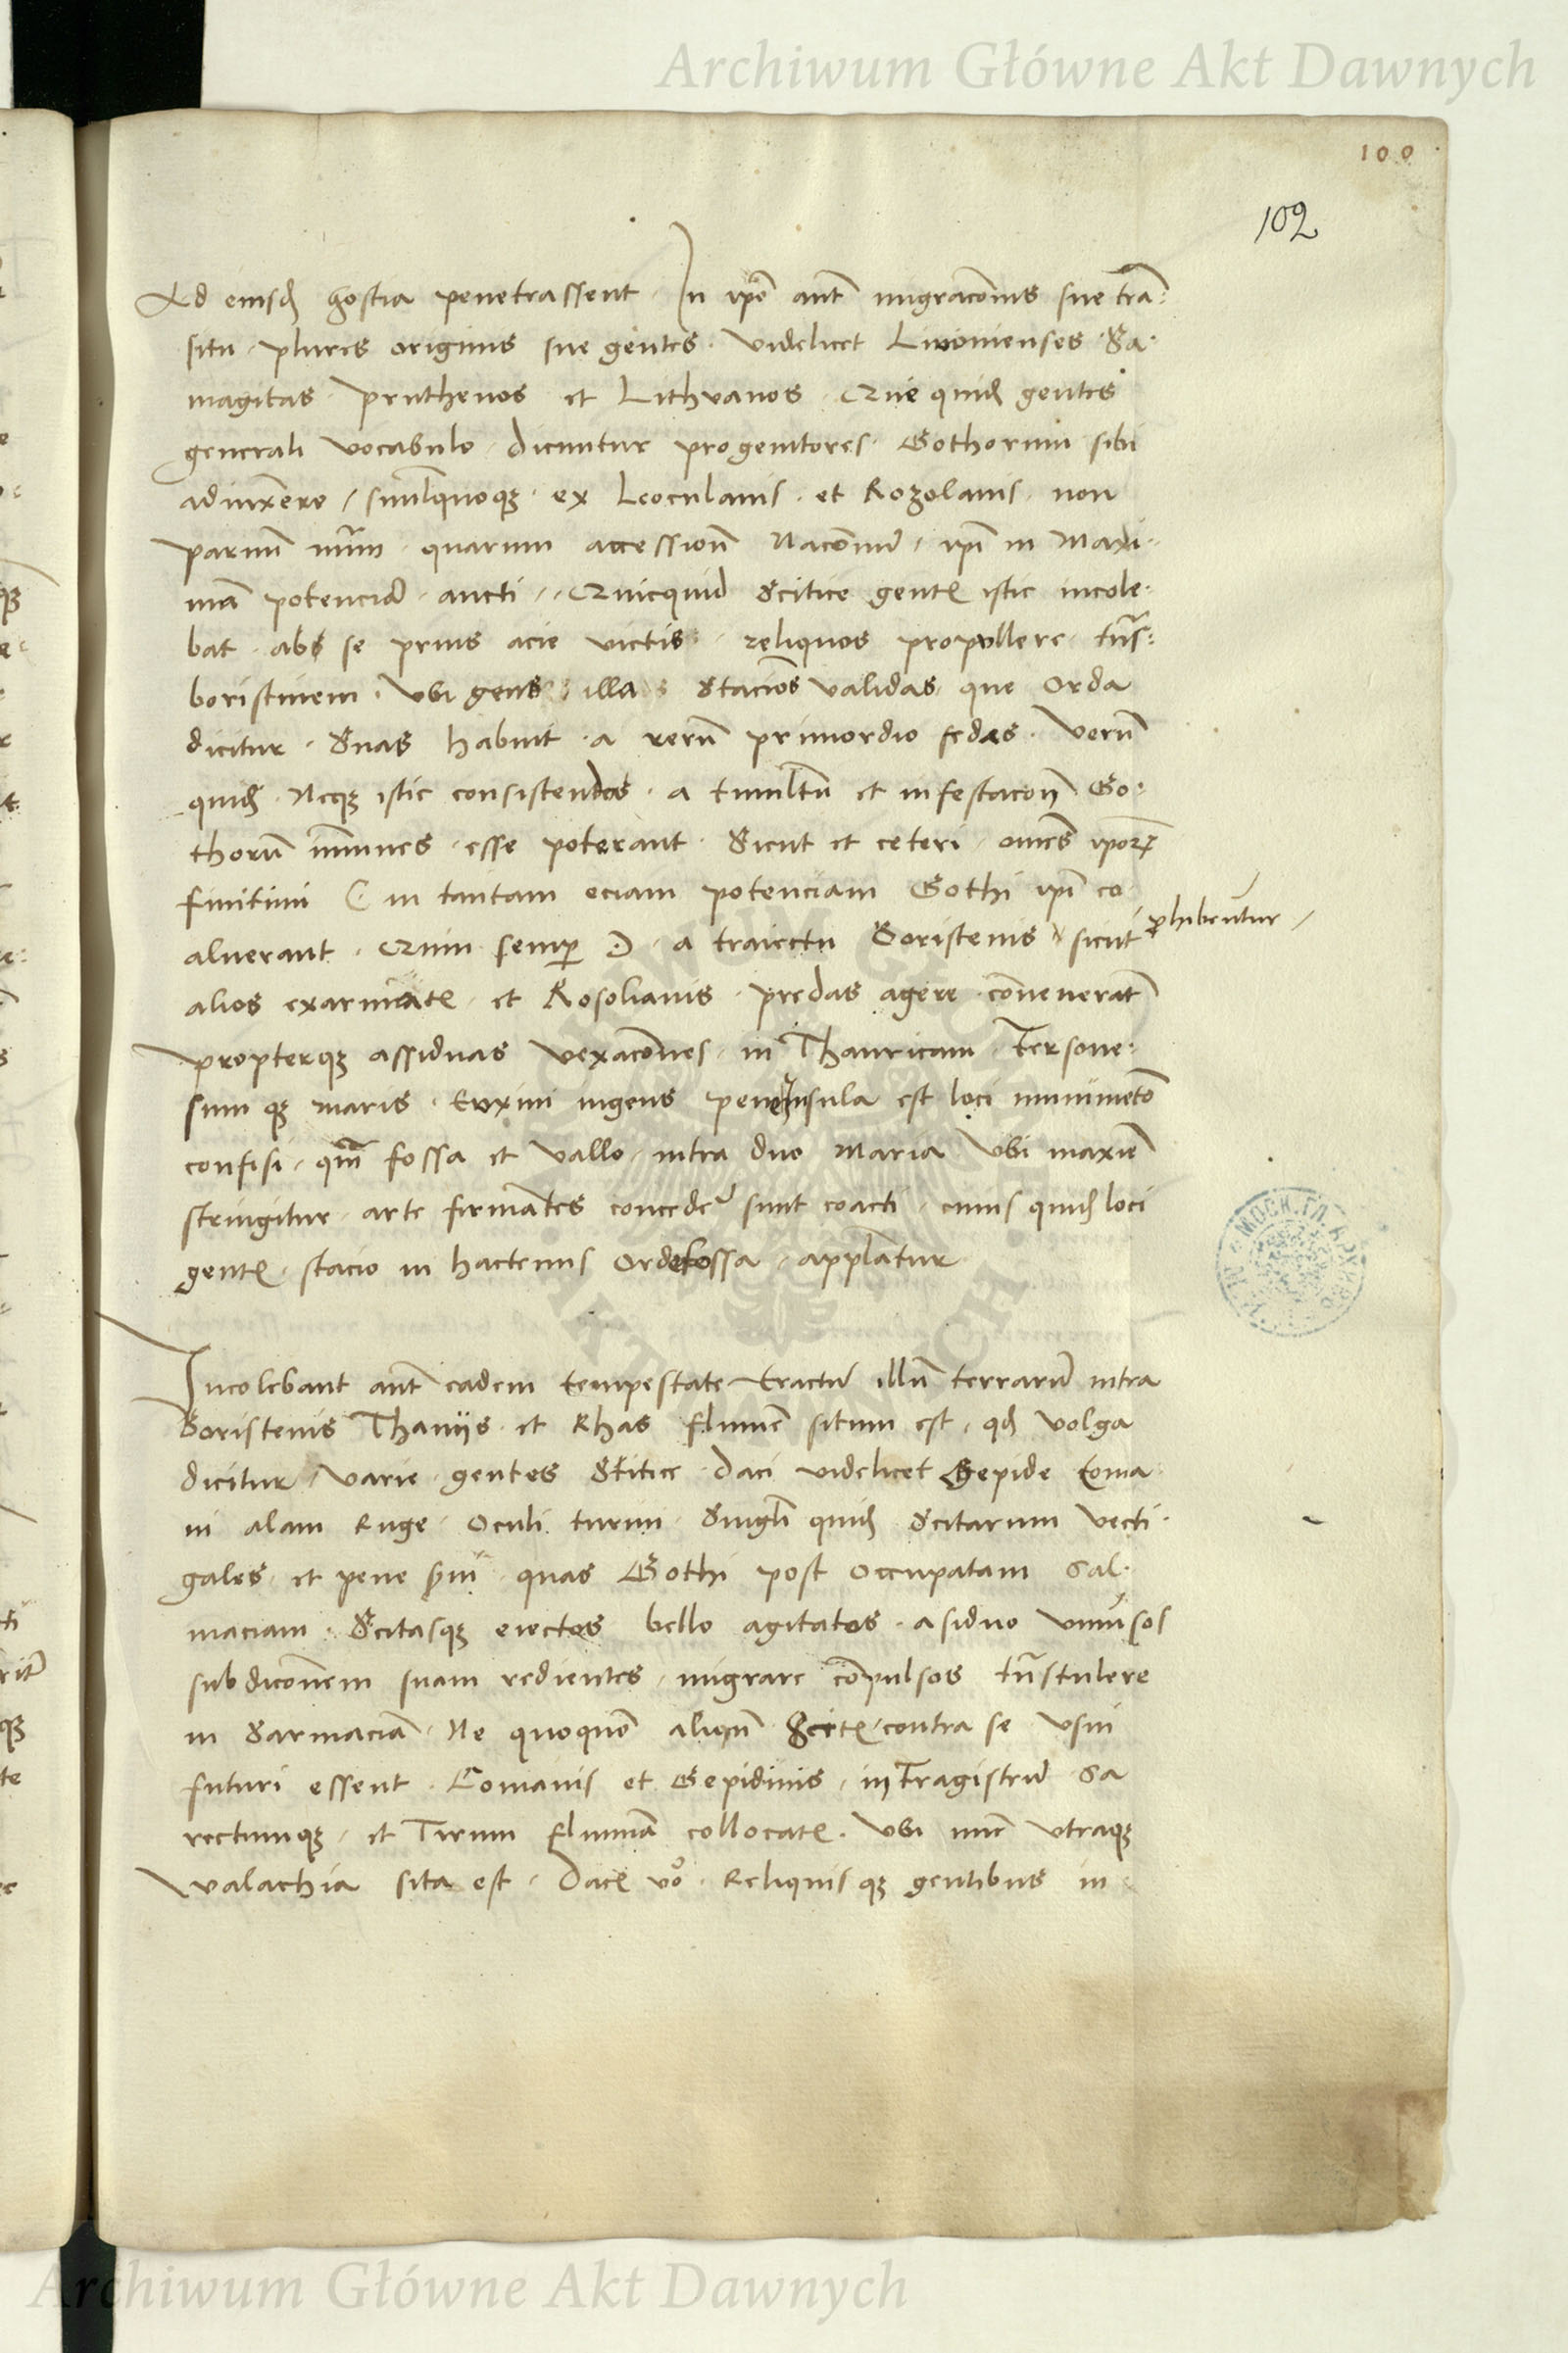 Archiwum Główne Akt Dawnych
100
102
Ad eiusdẽ hostia penetrassent · In ip̃o aut̃ migracõnis sue tran̄:
situ · plures originis sue gentes · videlicet Livonienses · Sa·
magitas · Pruthenos et Lithvanos · Que quid̃ gentes
generali vocabulo · dicuntur progenitores · Gothorum sibi
adiunx̃ere / simulq̃uoqz · ex Leoculanis · et Rozolanis · non
parvũ nũm · quarum accessionũ Nacõnũ · ip̃i in Maxi·
mã potenciã · aucti · Quicquid Scitice gentis istic incole·
bat · abs se prius acie victis · reliquos propellere · trñs:
boristinem · vbi gens illa Stacio͂s validas que orda
dicitur · Suas habuit · a rerũ primordio sedes · Verũ
quid̃ · Neqz istic consistendos · a tumultũ et infestacoñ Go:
thorũ im̃unes · esse poterant · Sicut et ceteri · om̃es ip̃orꝝ
finitimi ( in tantam eciam potenciam Gothi ip̃i co
aluerant · Quin semp̱ ) · a traiectu Boristenis \ sicut p̱hibentur /
alios exarmate · et Rosolianis · predas agere · convenerat̃
propterqz assiduas vexacõnes · in Thauricam · Tersone:
sum qz maris · Euxini ingens peneinsula est loci munimeto͂
confisi · qm̃ fossa et vallo · intra duo Maria vbi maxiẽ
stringitur · arte firmãtes concedẽ sunt coacti · cuius quid̃ loci
gentis · stacio in hactenus Ordefossa · applatur
Incolebant aut̃ eadem tempestate tractũ illũ terrarũ intra
Boristenis Thanijs · et Rhas flumẽ situm est · qd̃ Volga
dicitur / varie · gentes Scitice · daci videlicet Gepide Coma
ni alam Ruge · Oculi turini · Singli̇ quid̃ Scitarum Vecti·
gales · et pene s̃vi · quas Gothi post occupatam Sal·
maciam · Scitasqz eiectos bello agitatos · asiduo vniṽsos
sub dicõnem suam redientes · migrare cõpulsos trãstulere
in Sarmaciã · Ne quoquõ aliqñ Scite contra se vsui
futuri essent · Comanis et Gepidinis · in Tragistrũ Sa
rectumqz · et Tirum fluminã collocate · Vbi nunc vtraqz
Walachia sita est · Dace vo̊ · Reliquis qz gentibus in
Archiwum Główne Akt Dawnych